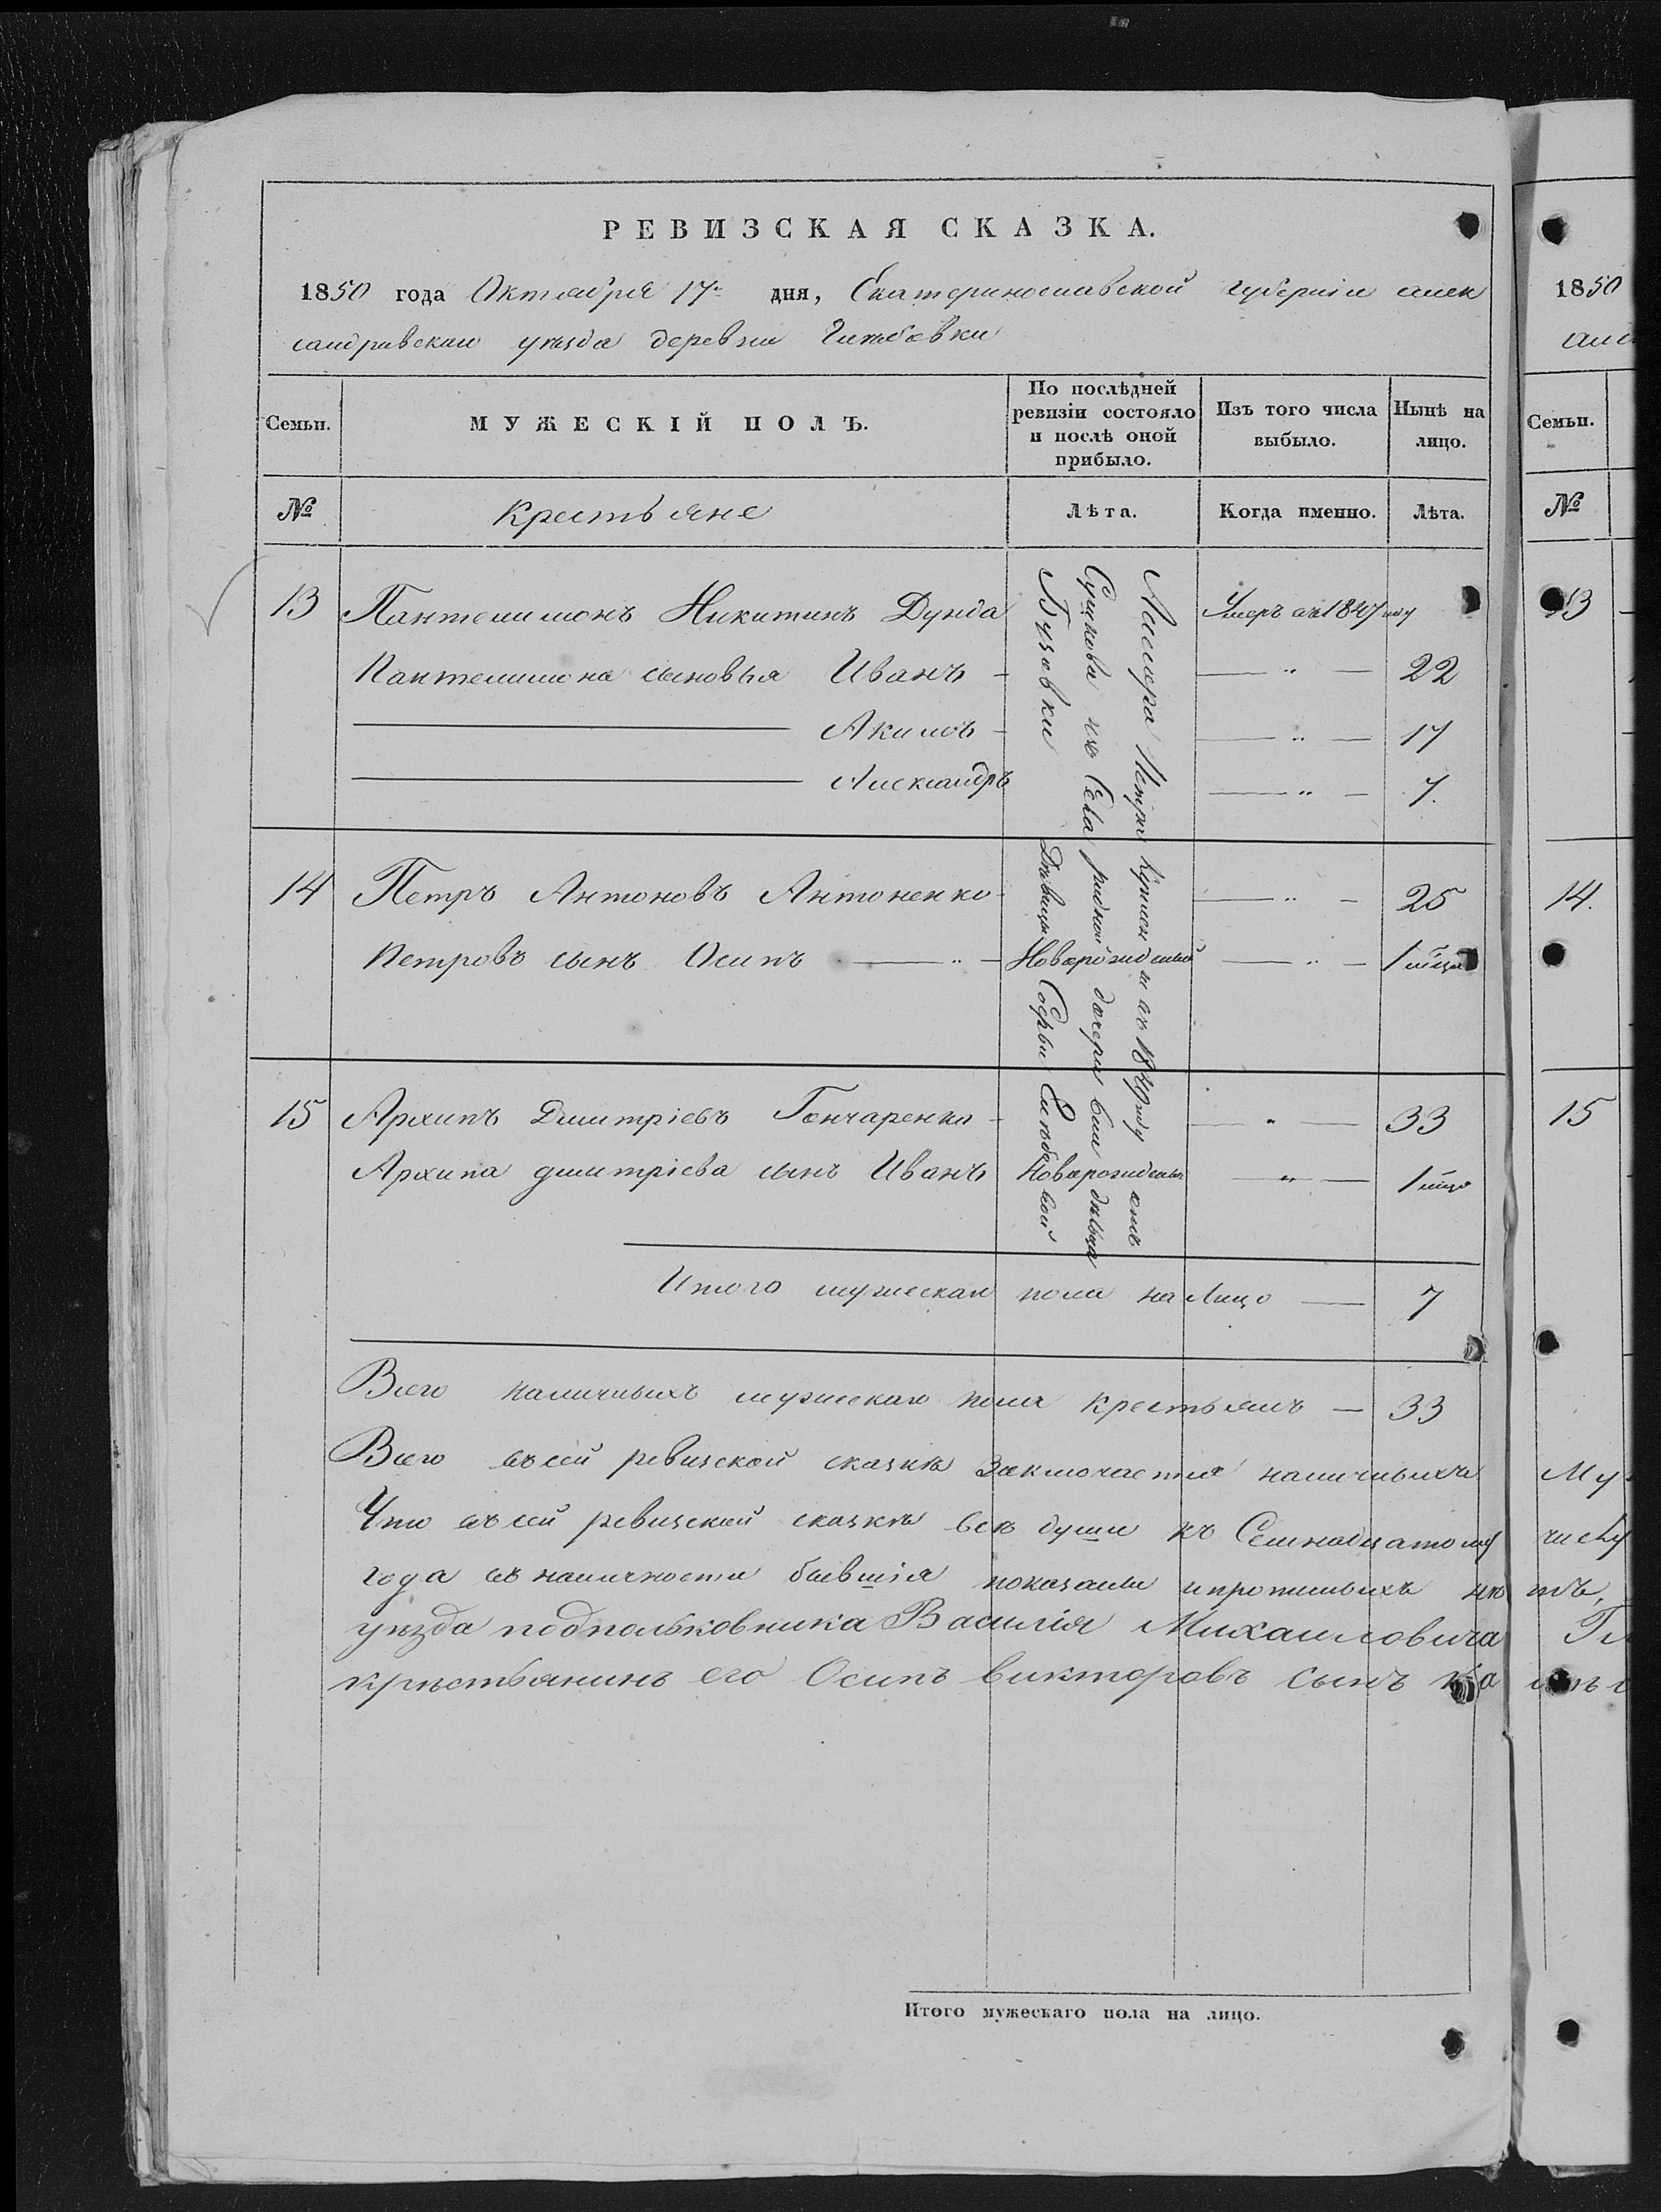 РЕВИЗСКАЯ СКАЗКА.
1850 года Октября 17 дня, Екатеринославской губерніи алек
сандравскаи уѣзда деревни
Семьи.
МУЖЕСКІЙ ПОЛЪ.
По послѣдней ревизіи состояло и послѣ оной прибыло.
Изъ того числа выбыло.
Нынѣ на лицо.
№
Крестьяне
Лѣта.
Когда именно.
Лѣта.
13 Пантелимонъ Никитинъ Дунда Умеръ въ 1847 году
Пантелимона сыновья Иванъ — " — 22
Акимъ — " — 17
Александръ — " — 7.
14 Петръ Антоновъ Антоненко — " — 25
Петровъ сынъ Осипъ — " — Новорожденный — " — 1
15 Архипъ Дмитріевъ Гончаренко — " — 33
Архипа дмитріева сынъ Иванъ Новорожденный — " — 1
Маіора Петра и въ 18 году отъ
изъ Села родной дочери
Бузовки Дѣвицы Софьи
Итого мужескаи пола на Лицо — 7
Всего наличныхъ мужескаи пола крестьянъ — 33
Всего въ сей ревизской сказкѣ заключается наличныхъ
Что въ сей ревизской сказкѣ всѣ души къ Семнадцатому
года въ наличности бывшія показаны и прописныхъ нѣ
уѣзда подпольковника Василія Михаиловича
крѣстьянинъ его Осипъ викторовъ Сынъ
Итого мужескаго пола на лицо.
1850
Семьи.
№
13
14.
15
Му
числу
тъ,